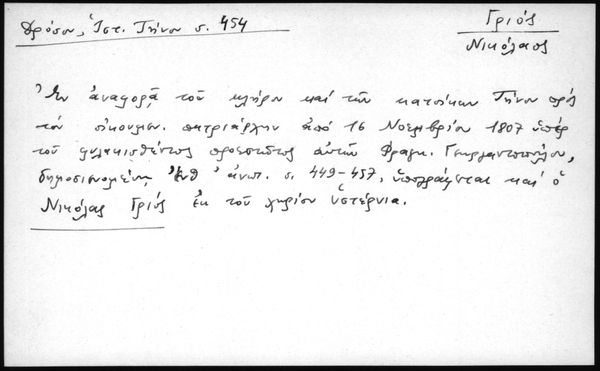 Δρόσου, Ἱστ. Τήνου σ. 454
Γριός
Νικόλαος
Ἐν ἀναφορᾷ τοῦ κλήρου καὶ τῶν κατοίκων Τήνου πρός
τὸν οἰκουμεν. πατριάρχην ἀπὸ 16 Νοεμβρίου 1807 ὑπέρ
τοῦ φυλακισθέντος προεστῶτος αὐτῶν Φραγκ. Γεωργαντοπούλου,
δημοσιευομένῃ ἔνθ' ἀνωτ. σ. 449-457, ὑπογράφεται καὶ ὁ
Νικόλας Γριός ἐκ τοῦ χωρίου Ὑστέρνια.